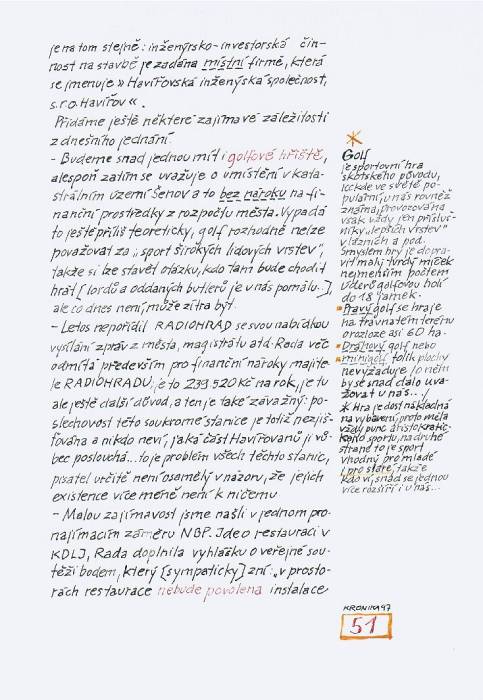 je na tom stejně: inženýrsko-investorská čin-
nost na stavbě je zadána místní firmě, která
se jmenuje » Havířovská inženýrská společnost,
s.r.o. Havířov «.
Přidáme ještě některé zajímavé záležitosti
z dnešního jednání.
- Budeme snad jednou mít i golfové hřiště,
alespoň zatím se uvažuje o umístění v kata-
strálním území Šenov a to bez nároku na fi-
nanční prostředky z rozpočtu města. Vypadá
to ještě příliš teoreticky, golf rozhodně nelze
považovat za „sport širokých lidových vrstev",
takže si lze stavět otázku, kdo tam bude chodit
hrát [lordů a oddaných butlerů je u nás pomálu.],
ale co dnes není, může zítra být.
- Letos nepořídil RADIOHRAD se svou nabídkou
vysílání zpráv z města, magistrátu atd. Rada věc
odmítla především pro finanční nároky majite-
le RADIOHRADU, je to 239.520 Kč na rok, je tu
ale ještě další důvod, a ten je také závažný: po-
slechovost této soukromé stanice je totiž nezjiš-
ťována a nikdo neví, jaká část Havířovanů ji vů-
bec poslouchá... to je problém všech těchto stanic,
pisatel určitě není osamělý v názoru, že jejich
existence více méně není k ničemu.
- Malou zajímavost jsme našli v jednom pro-
najímacím záměru NBP. Jde o restauraci v
KDLJ, Rada doplnila vyhlášku o veřejné sou-
těži bodem, který [sympaticky] zní: „v prosto-
rách restaurace nebude povolena instalace
*
Golf
je sportovní hra
skotského původu,
leckde ve světě po-
pulární, u nás rovněž
známá, provozovaná
však vždy jen přísluš-
níky „lepších vrstev"
v lázních a pod.
Smyslem hry je dopra-
vit malý tvrdý míček
nejmenším počtem
úderů golfovou holí
do 18 jamek.
Pravý golf se hraje
na travnatém terénu
o rozloze asi 60 ha.
Dráhový golf nebo
minigolf tolik plochy
nevyžaduje / o něm
by se snad dalo uva-
žovat u nás.../
* Hra je dost nákladná
na vybavení, proto měla
vždy punc aristokratic-
kého sportu, na druhé
straně to je sport
vhodný pro mladé
i pro staré, takže
kdo ví, snad se jednou
více rozšíří i u nás...
KRONIKA 97
51